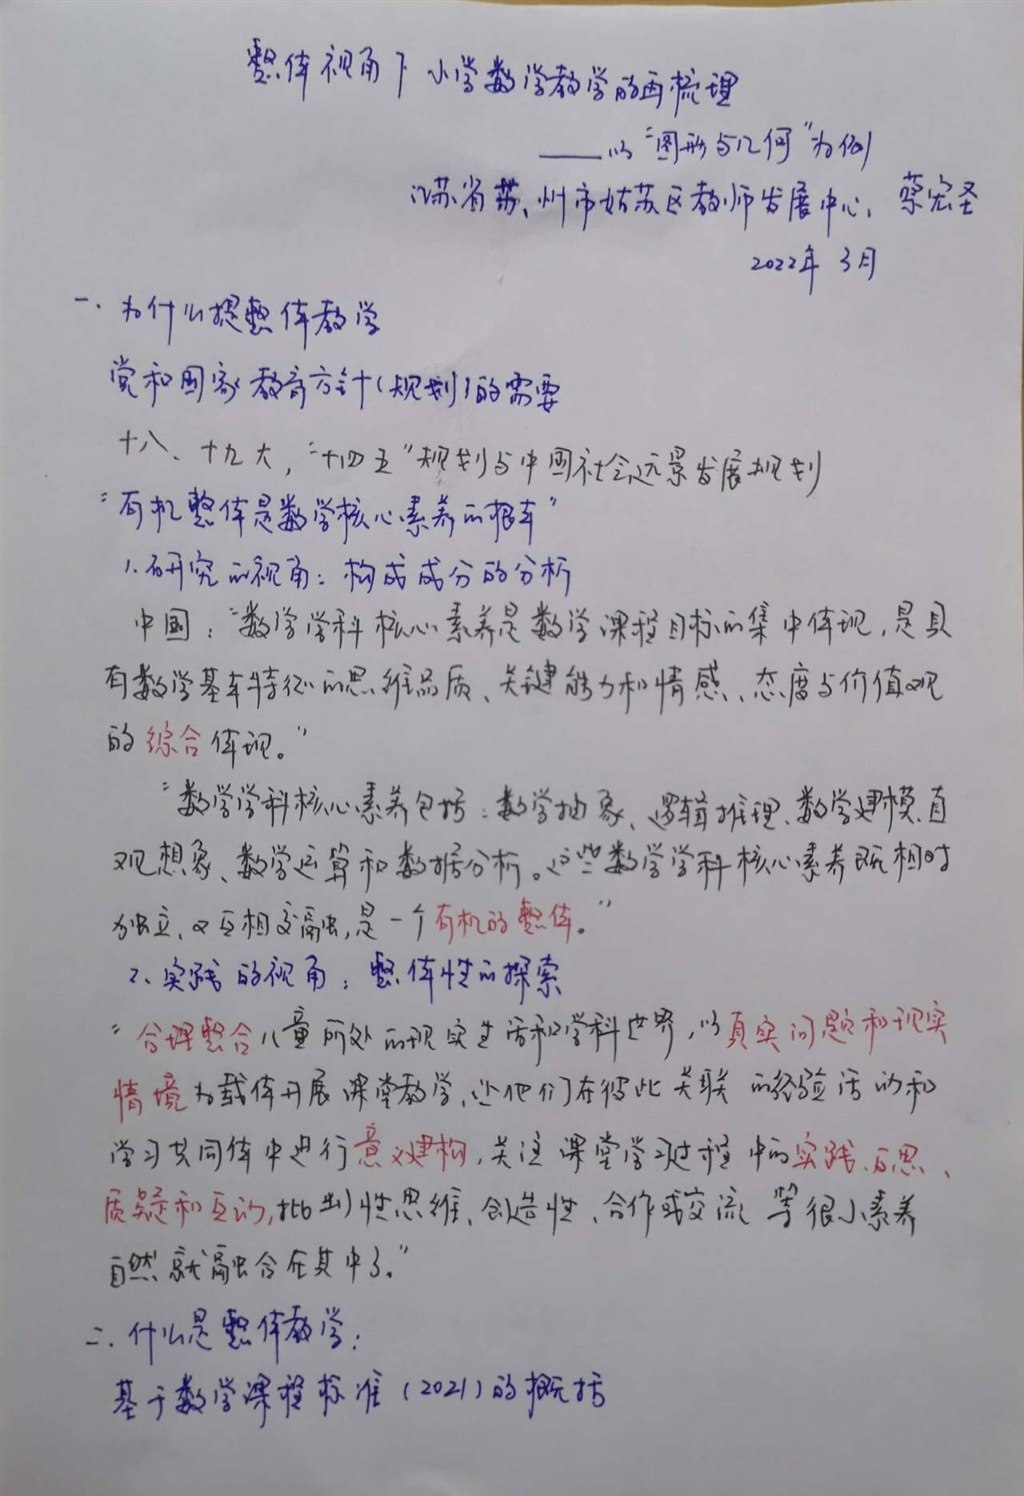 整体视角下小学数学教学的再梳理
——以“图形与几何”为例
江苏省苏州市姑苏区教师发展中心、蔡宏圣
2022年3月
一、为什么提整体教学
党和国家教育方针(规划)的需要
十八、十九大，“十四五”规划与中国社会远景发展规划
“有机整体是数学核心素养的根本”
1.研究的视角：构成成分的分析
中国：“数学学科核心素养是数学课程目标的集中体现，是具
有数学基本特征的思维品质、关键能力和情感、态度与价值观
的综合体现。”
“数学学科核心素养包括：数学抽象、逻辑推理、数学建模、直
观想象、数学运算和数据分析。这些数学学科核心素养既相对
独立、又互相交融，是一个有机的整体。”
2.实践的视角：整体性的探索
“合理整合儿童所处的现实生活和学科世界，以真实问题和现实
情境为载体开展课堂教学，让他们在彼此关联的经验活动和
学习共同体中进行意义建构，关注课堂学习过程中的实践、反思、
质疑和互动，批判性思维、创造性、合作或交流等很多素养
自然就融合在其中了。”
二、什么是整体教学：
基于数学课程标准(2021)的概括